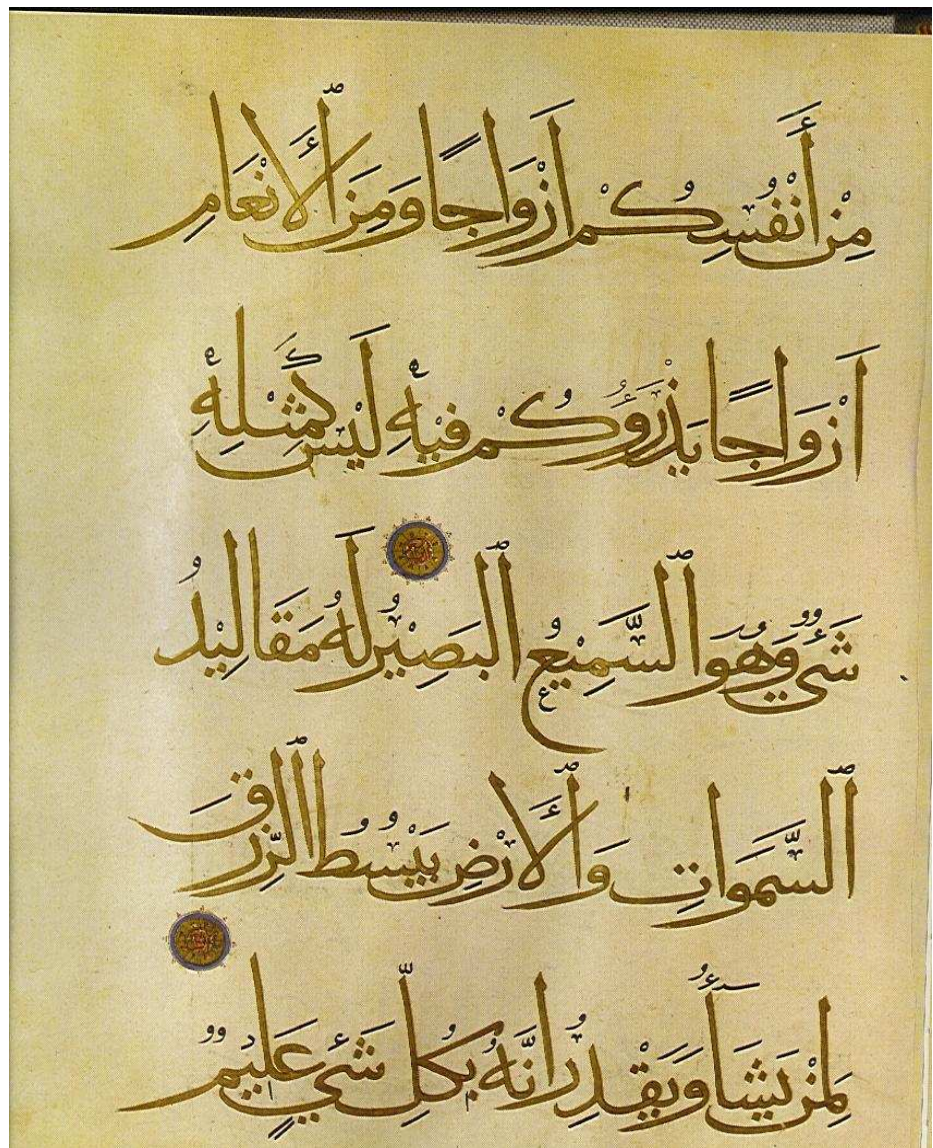 مِنْ أَنْفُسِكُمْ أَزْوَاجًا وَمِنَ ٱلْأَنْعَامِ
أَزْوَاجًا يَذْرَؤُكُمْ فِيْهِ لَيْسَ كَمِثْلِهِ
شَيْءٌ وَهُوَ ٱلسَّمِيْعُ ٱلْبَصِيْرُ لَهُ مَقَالِيْدُ
ٱلسَّمَوَاتِ وَٱلْأَرْضِ يَبْسُطُ ٱلرِّزْقَ
لِمَنْ يَشَآءُ وَيَقْدِرُ إِنَّهُ بِكُلِّ شَيْءٍ عَلِيْمٌ